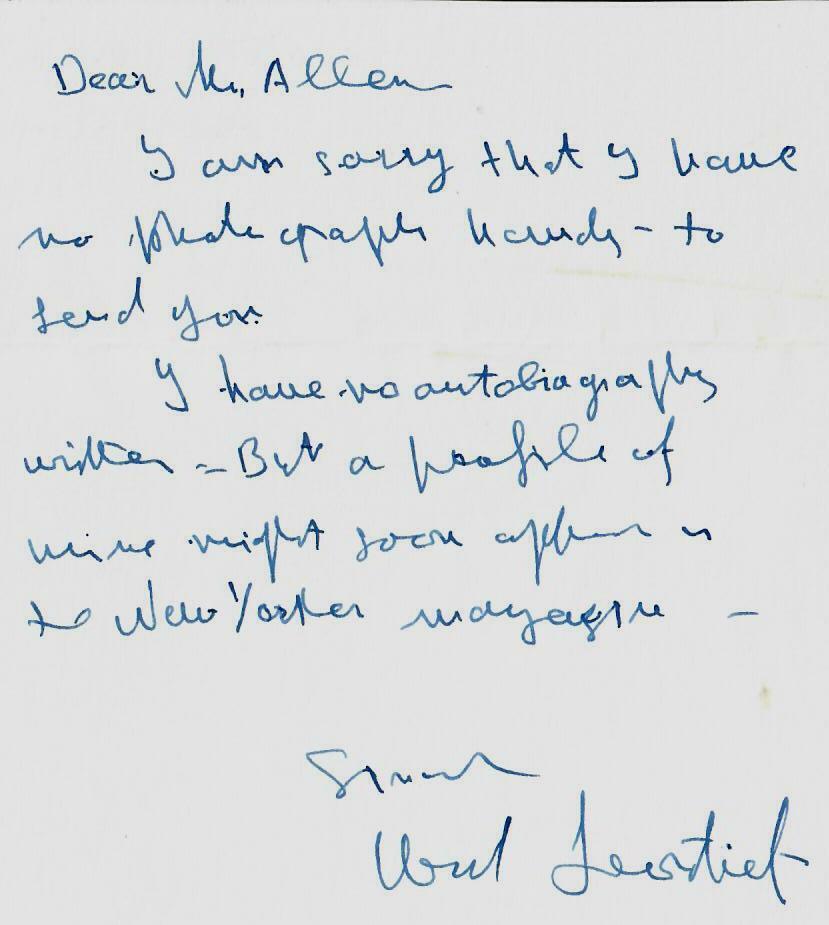 Dear Mr. Allen
I am sorry that I have
no photograph handy - to
send you.
I have no autobiography
written - But a profile of
mine might soon appear in
the New Yorker magazine -
Sincerely
Leontief